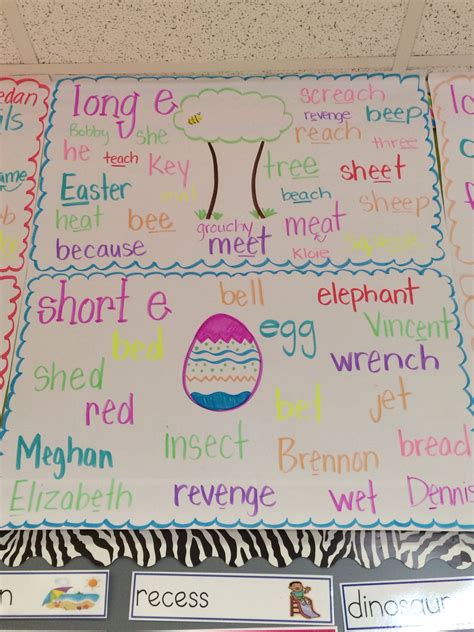 long e
screach
revenge beep
Bobby she
reach
he teach Key
three
tree sheet
Easter
beach
eat
sheep
heat bee grouchy meat
meet
Kloie Squeeze
because
short e
bell elephant
bed egg Vincent
shed
wrench
red bet jet
Meghan insect Brennon bread
Elizabeth revenge wet Dennis
edan
ils
ame
recess
dinosaur